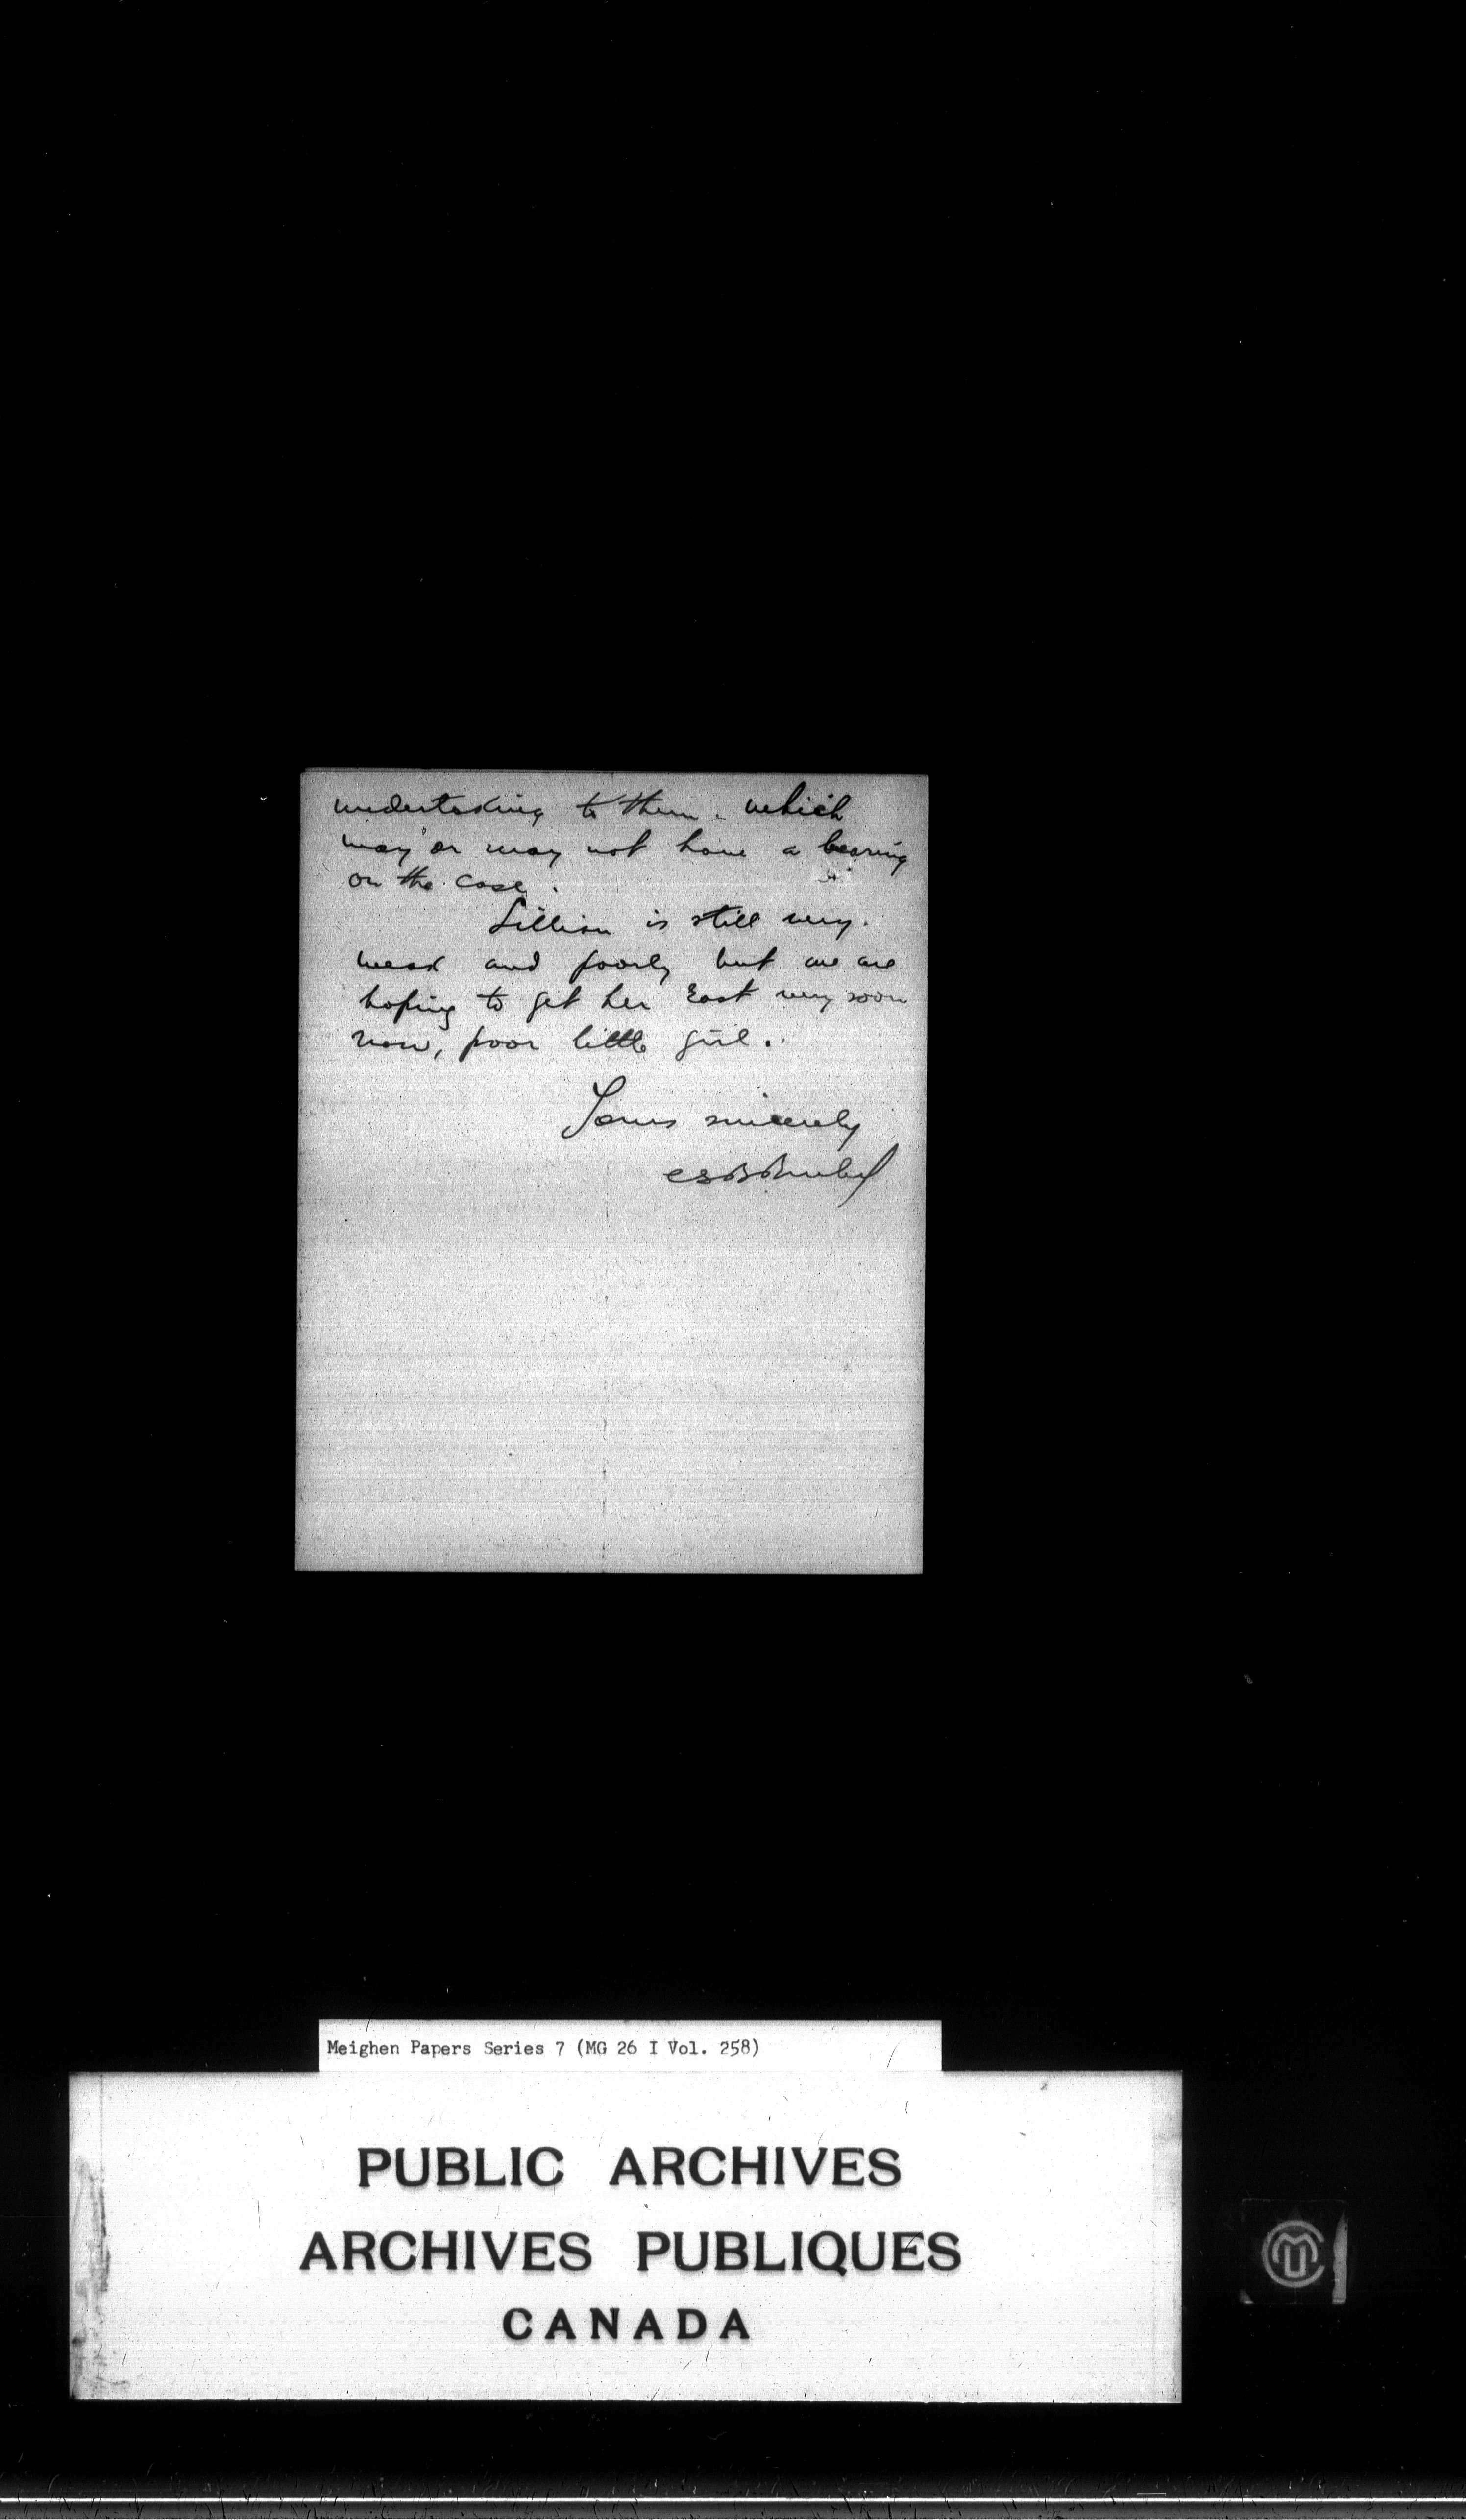 undertaking to them. which
may or may not have a bearing
on the case.
Lillian is still very
weak and poorly but we are
hoping to get her East very soon
now, poor little girl.
Yours sincerely
Meighen Papers Series 7 (MG 26 I Vol. 258)
PUBLIC ARCHIVES
ARCHIVES PUBLIQUES
CANADA